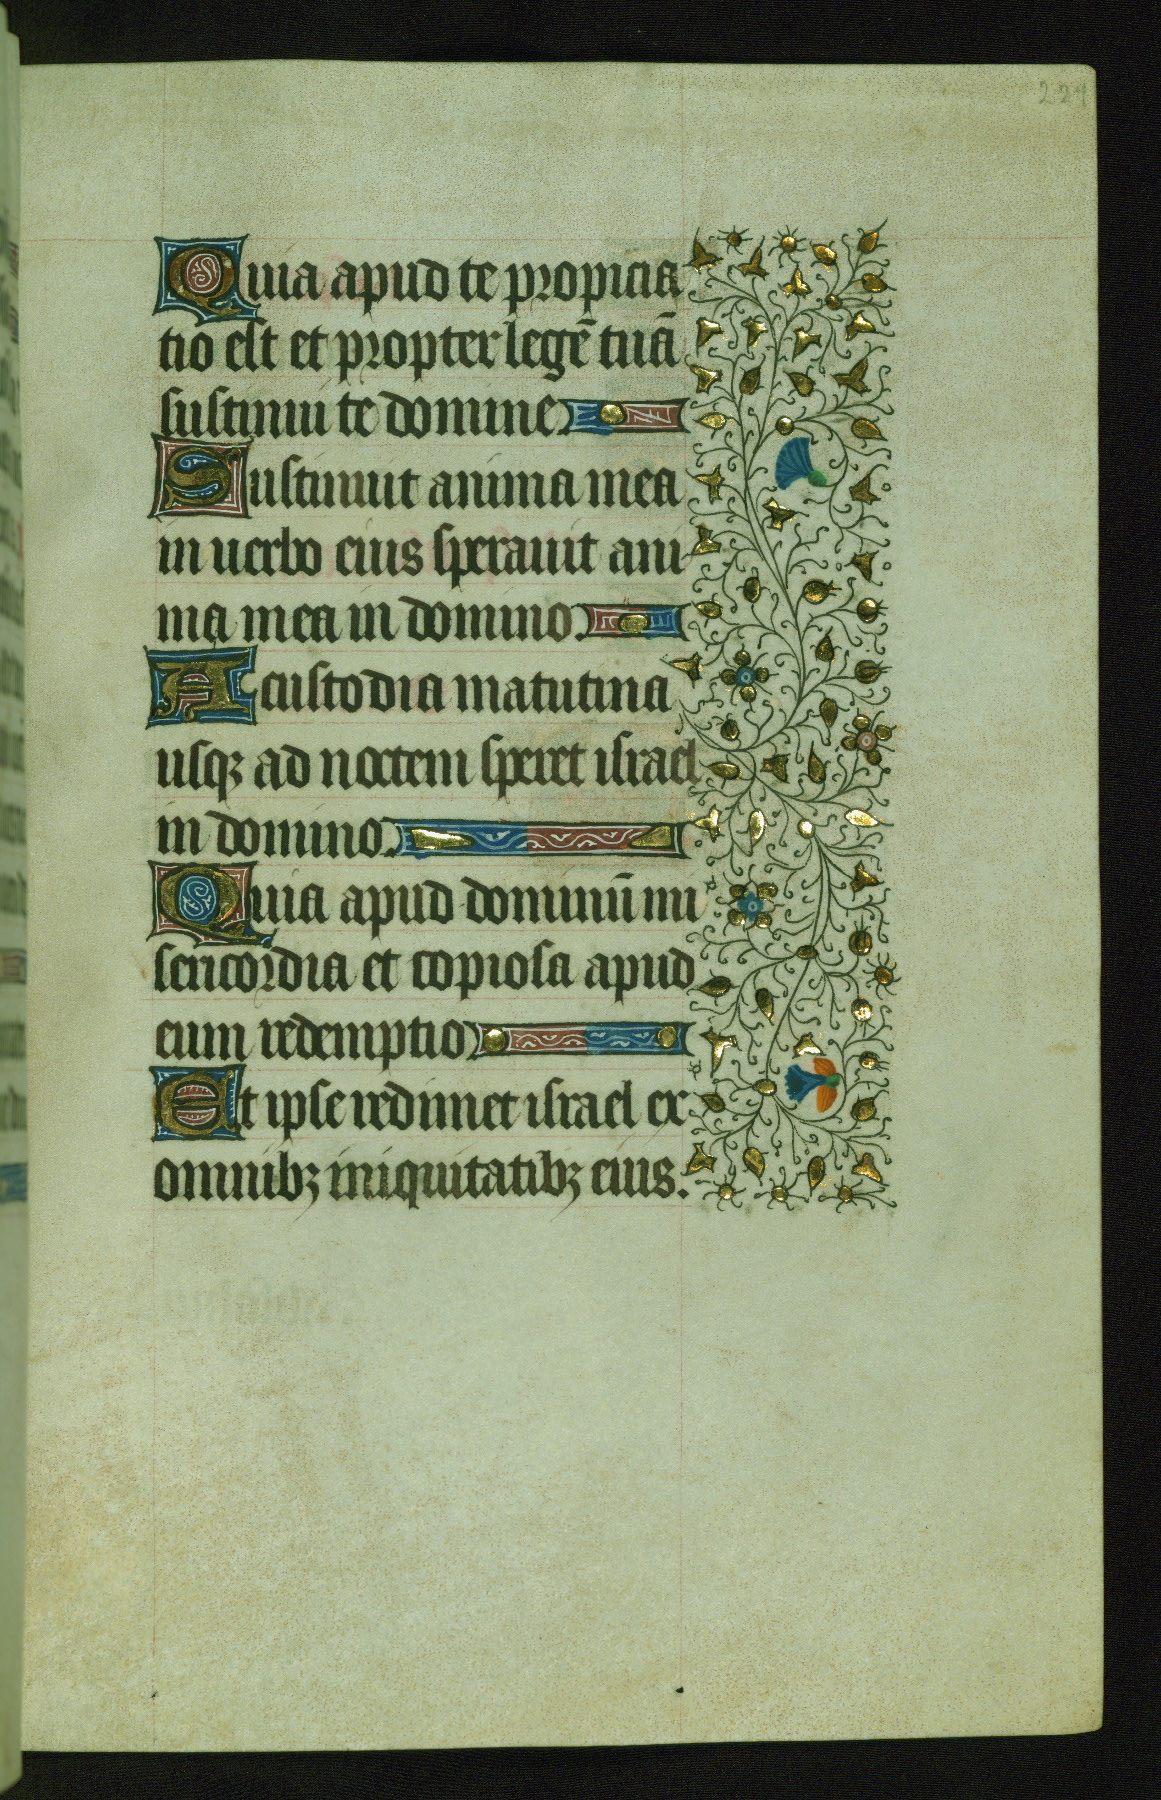 224
Quia apud te propicia
tio est et propter legē tuā
sustinui te domine
Sustinuit anima mea
in uerbo eius sperauit ani
ma mea in domino.
A custodia matutina
usqꝫ ad noctem speret israel
in domino.
Quia apud dominū mi
sericordia et copiosa apud
eum redemptio
Et ipse redimet israel ex
omnibꝫ iniquitatibꝫ eius.